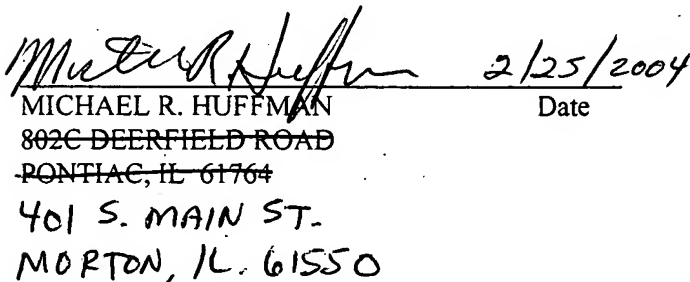 Michael R Huffman 2/25/2004
MICHAEL R. HUFFMAN Date
802C DEERFIELD ROAD
PONTIAC, IL 61764
401 S. MAIN ST.
MORTON, IL. 61550